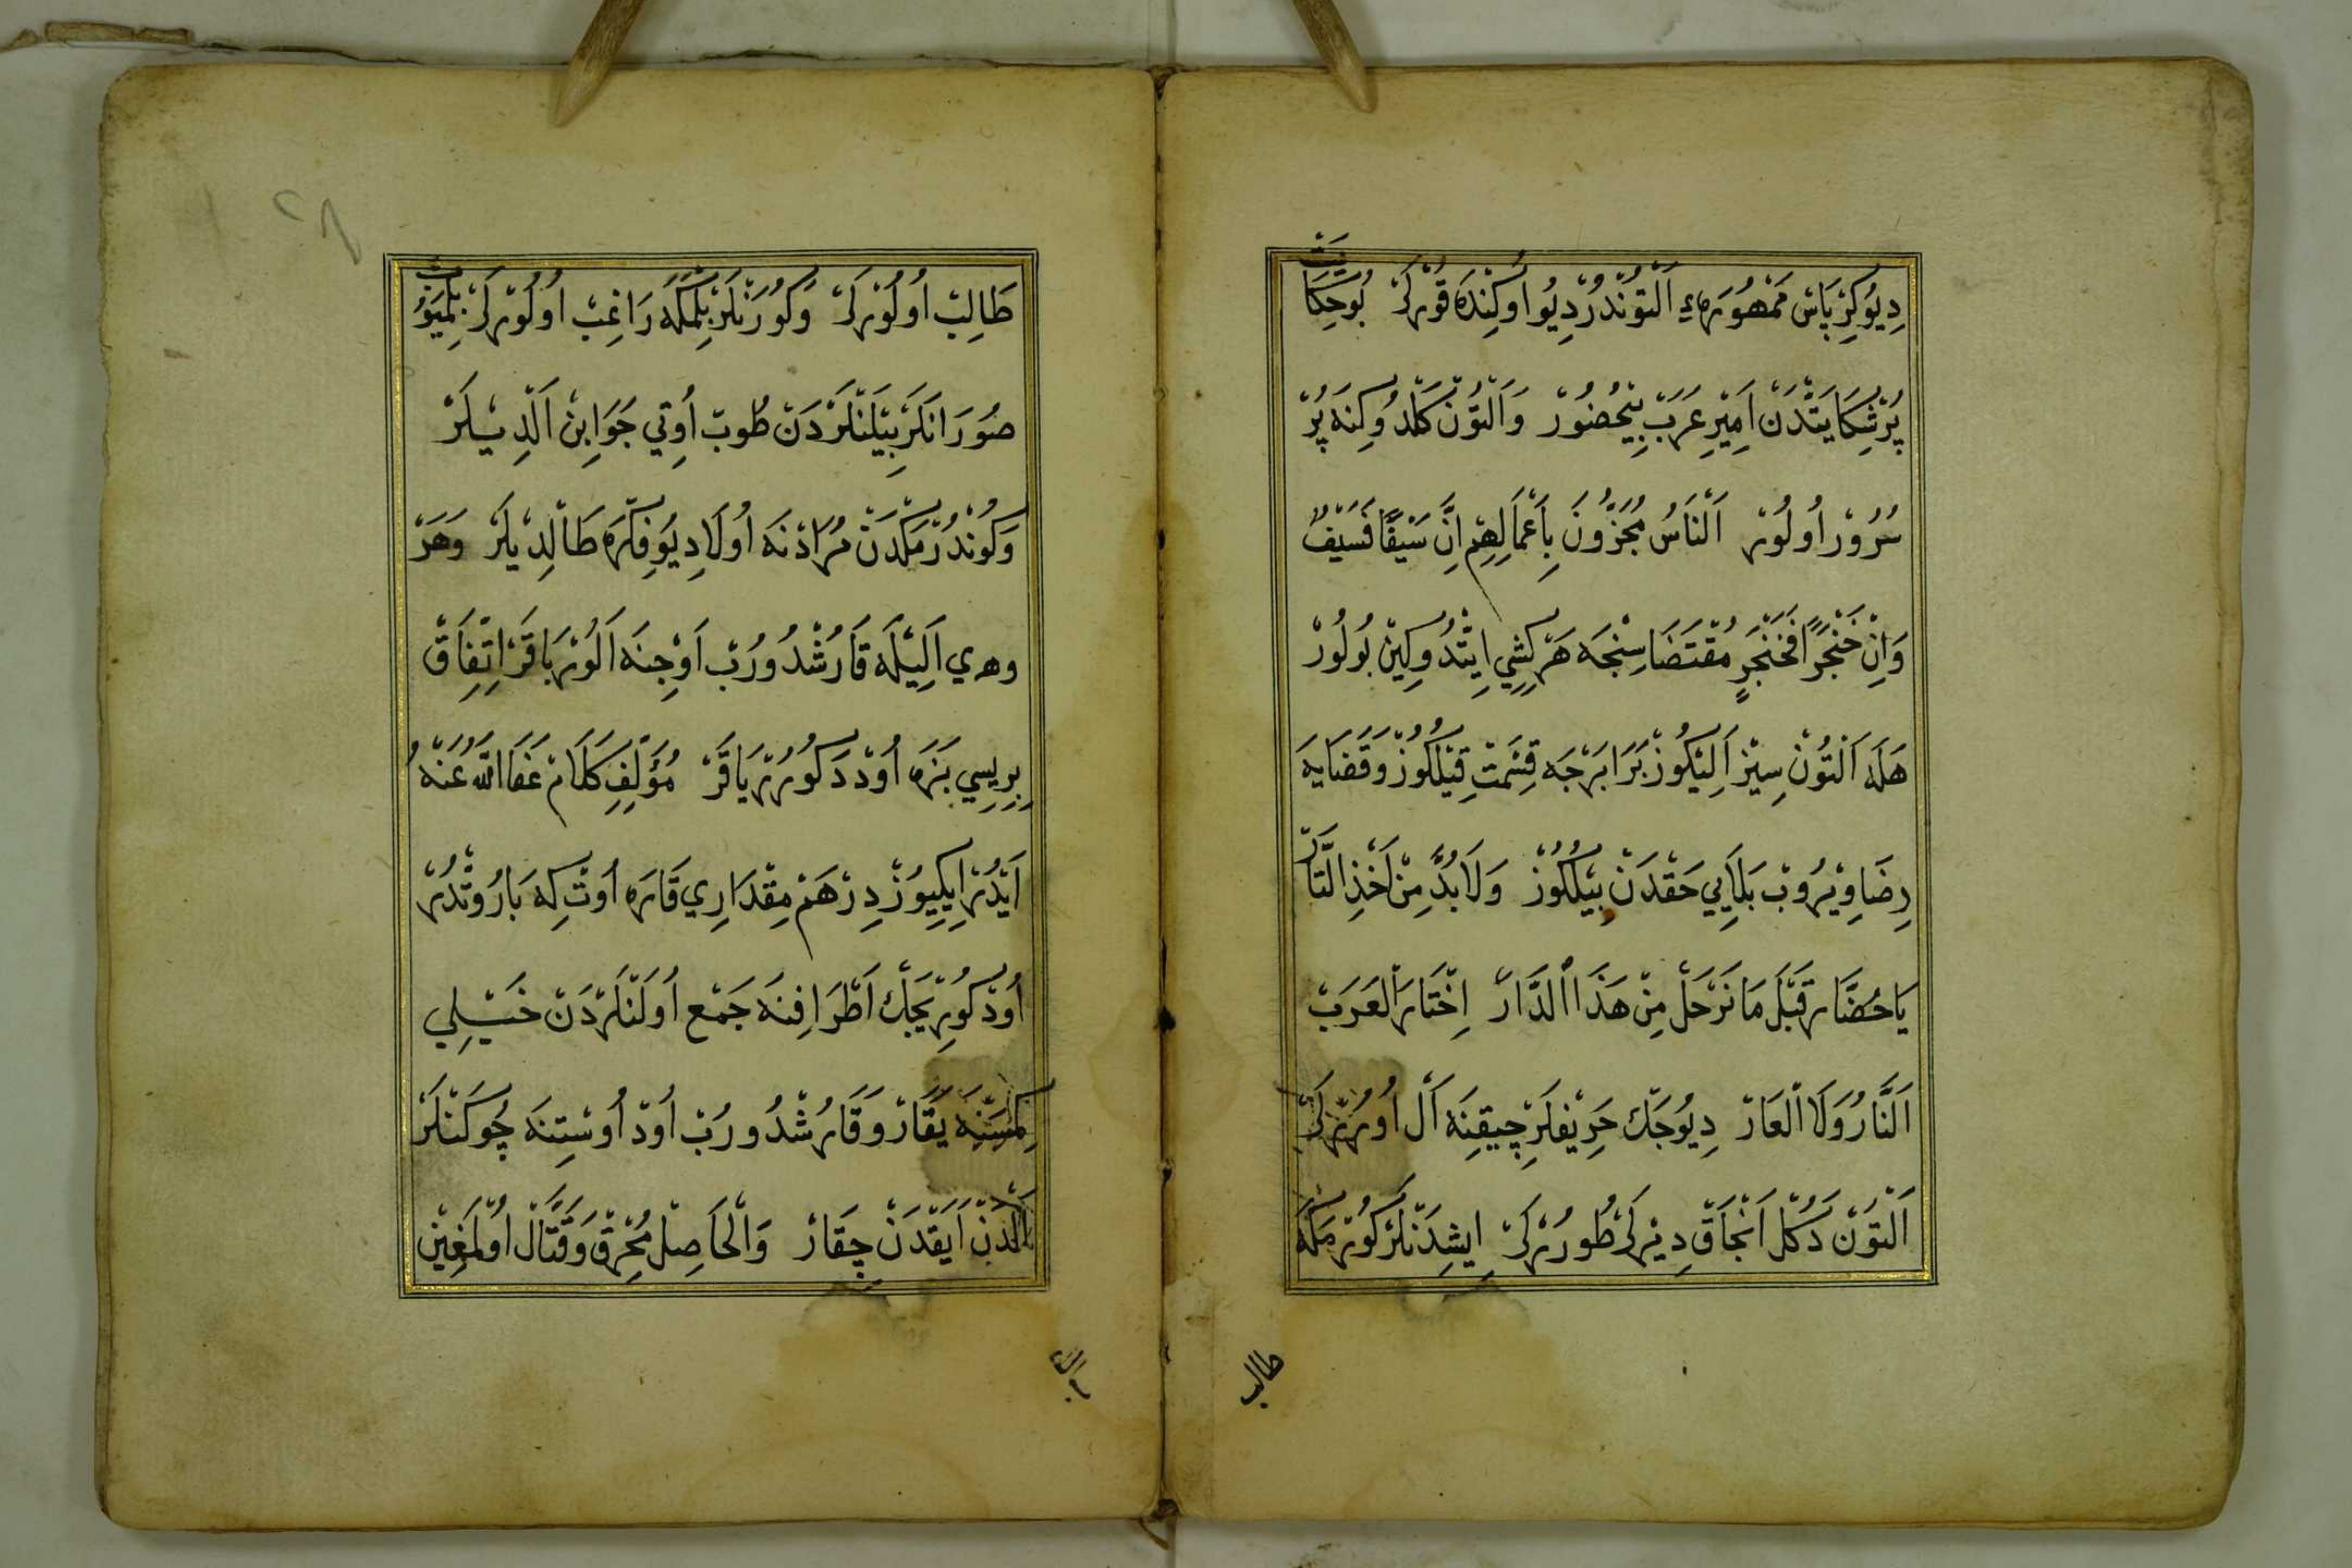 دِيُوكِرْبَاسْ مَمْهُورَهءِ اَلْتُونْدُرْ دِيُو اوُكِنْدَه قُورْلَرْ بُوحِكَايَتْ
پُرْشِكَايَتْدَنْ اَمِيرِ عَرَبْ بِيْحُضُورْ وَاَلْتُونْ كَلْدُوكِنَه پُرْ
سُرُورْ اُولُورْ اَلنَّاسُ مُجْزُونَ بِاَعْمَالِهِمْ اِنَّ سَيْفًا فَسَيْفٌ
وَاِنْ خَنْجَرًا فَخَنْجَرٍ مُقْتَضَاسِنْجَه هَرْكِشِي اِيتْدُوكِينْ بُولُورْ
هَلَه اَلْتُونْ سِيزْ اَلِيْكُوزْ بَرَابَرْجَه قِسْمَتْ قِيْلِكُوزْ وَقَضَايَه
رِضَا وِيْرُوبْ بَلَايِي حَقْدَنْ بِيْلِكُوزْ وَلَابُدَّ مِنْ اَخْذِ الثَّارْ
يَاحُضَّارْ قَبْلَ مَا نَرْحَلْ مِنْ هَذَا الدَّارْ اِخْتَارَ الْعَرَبْ
اَلنَّارُ وَلَا الْعَارْ دِيُوجَكْ حَرِيفْلَرْ چِيقِنَه اَلْ اُورُرْلَرْكِ
اَلْتُونْ دَكُلْ اَنْجَاقْ دِيرْلَرْ طُورُرْلَرْ اِيشِدَنْلَرْ كُورْمَكَه
طالب
طَالِبْ اُولُورْلَرْ وَكُورَنْلَرْ بِلْمَكَه رَاغِبْ اُولُورْلَرْ بِلْمَيُوبْ
صُورَانْلَرْ بِيلَنْلَرْدَنْ طُوبْ اُوتِي جَوَابِنْ اَلْدِيلَرْ
وَكُونْدُرْمَكْدَنْ مُرَادْ نَه اُولَا دِيُو فِكْرَه طَالْدِيلَرْ وَهَرْ
وهري اَلِيلَه قَارُشْدُورُبْ اَوْجِنَه اَلُورْ بَاقَرْ اِتِّفَاقْ
بِرِيسِي بَزَه اُودْ دَكُورُرْ يَاقَرْ مُؤَلِّفِ كَلَامْ عَفَا اللّٰه عَنْهُ
اَيْدُرْ اِيكِيُوزْ دِرْهَمْ مِقْدَارِي قَارَه اُوتْ كِه بَارُوتْدُرْ
اُودْ كُورِيجَكْ اَطْرَافِنَه جَمْع اُولَنْلَرْدَنْ خَيْلِي
كِمْسَنَه يَقَارْ وَقَارُشْدُورُبْ اُودْ اُوسْتِنَه چُوكَنْلَرْ
اَلْدَنْ اَيَقْدَنْ چِقَارْ وَالْحَاصِلْ مُحْرِقْ وَقَتَّالْ اُولْمَغِينْ